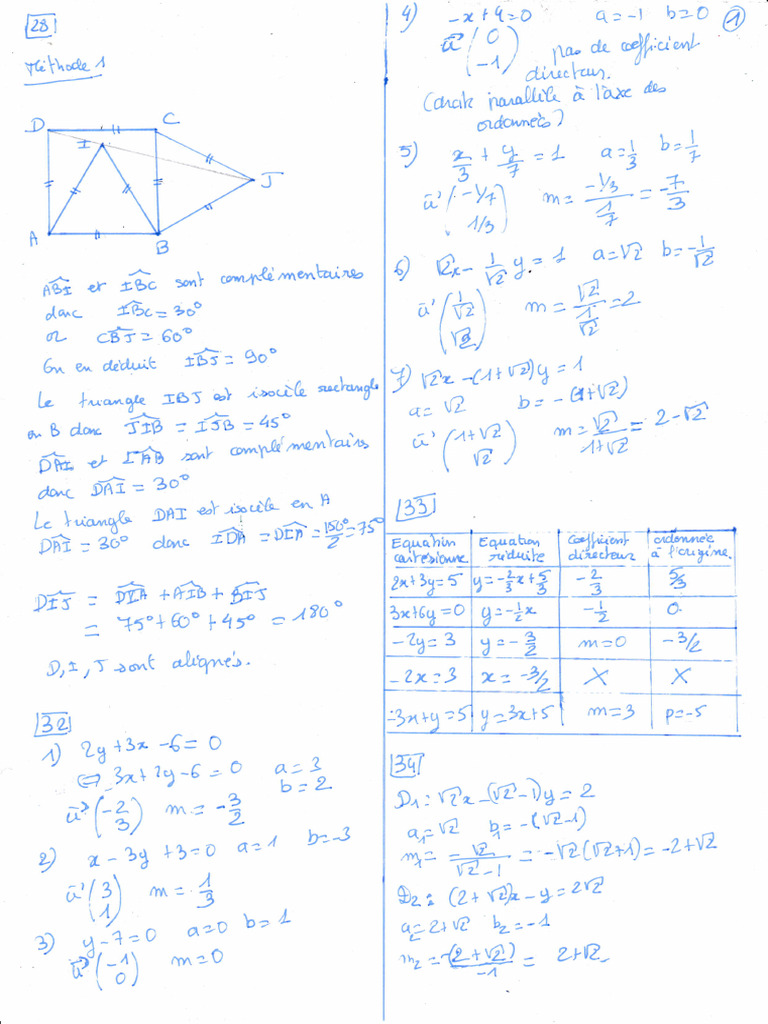 28
Méthode 1
D C
I
J
A B
ABI et IBC sont complémentaires
donc IBC = 30°
or CBJ = 60°
On en déduit IBJ = 90°
Le triangle IBJ est isocèle rectangle
en B donc JIB = IJB = 45°
DAI et IAB sont complémentaires
donc DAI = 30°
Le triangle DAI est isocèle en A
DAI = 30° donc IDA = DIA = 150°/2 = 75°
DIJ = DIA + AIB + BIJ
= 75° + 60° + 45° = 180°
D, I, J sont alignés.
32
1) 2y + 3x - 6 = 0
⇔ 3x + 2y - 6 = 0 a = 3
b = 2
u (-2 3) m = -3/2
2) x - 3y + 3 = 0 a = 1 b = -3
u (3 1) m = 1/3
3) y - 7 = 0 a = 0 b = 1
u (-1 0) m = 0
1
4) -x + 4 = 0 a = -1 b = 0
u (0 -1) pas de coefficient
directeur.
(droite parallèle à l'axe des
ordonnées)
5) x/3 + y/7 = 1 a = 1/3 b = 1/7
u (-1/7 1/3) m = (-1/3)/(1/7) = -7/3
6) √2x - 1/√2 y = 1 a = √2 b = -1/√2
u (1/√2 √2) m = √2/(1/√2) = 2
7) √2x - (1+√2)y = 1
a = √2 b = -(1+√2)
u (1+√2 √2) m = √2/(1+√2) = 2-√2
33
Equation cartésienne | Equation réduite | Coefficient directeur | ordonnée à l'origine
2x+3y=5 | y=-2/3x+5/3 | -2/3 | 5/3
3x+6y=0 | y=-1/2x | -1/2 | 0
-2y=3 | y=-3/2 | m=0 | -3/2
-2x=3 | x=-3/2 | X | X
-3x+y=5 | y=3x+5 | m=3 | p=-5
34
D1 = √2x - (√2-1)y = 2
a1 = √2 b1 = -(√2-1)
m1 = -√2/(√2-1) = -√2(√2+1) = -2+√2
D2 : (2+√2)x - y = 2√2
a2 = 2+√2 b2 = -1
m2 = -(2+√2)/-1 = 2+√2